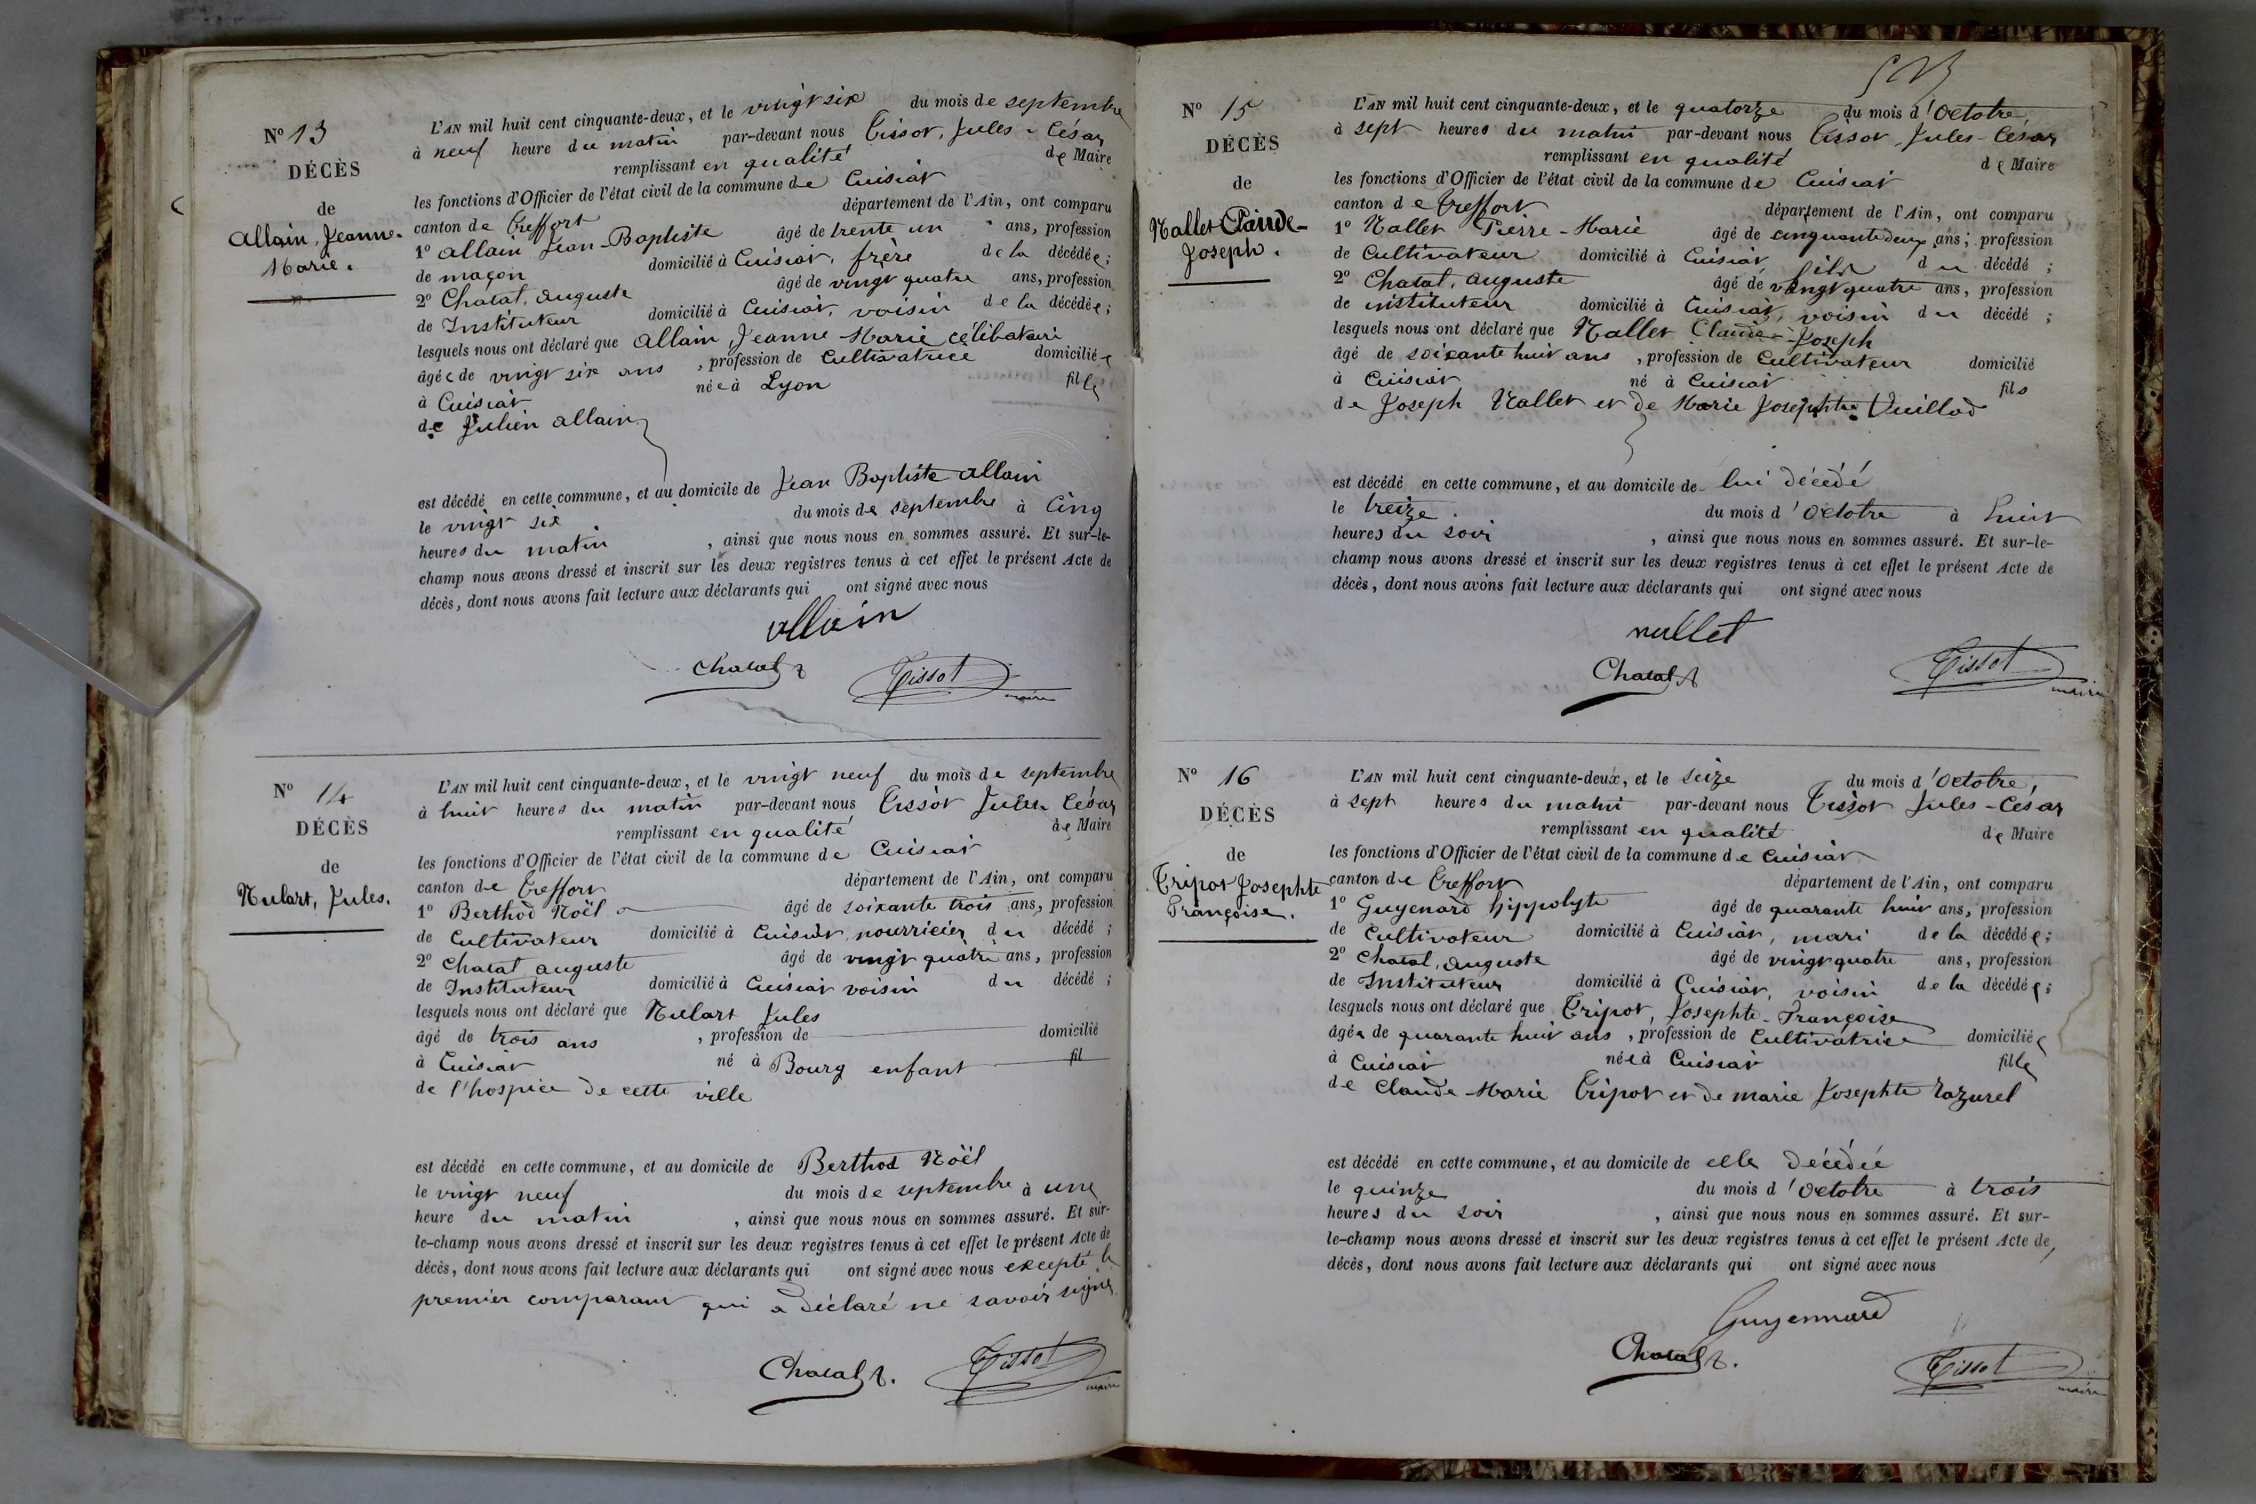 Nº 13
DÉCÈS
de
Allain, Jeanne-
Marie.
L'AN mil huit cent cinquante-deux, et le vingt six du mois de septembre
à neuf heure du matin par-devant nous Tissot, Jules-César
remplissant en qualité de Maire
les fonctions d'Officier de l'état civil de la commune de Cuisiat
canton de Treffort département de l'Ain, ont comparu
1º Allain Jean-Baptiste âgé de trente un ans, profession
de maçon domicilié à Cuisiat, frère de la décédée;
2º Chatat, auguste âgé de vingt quatre ans, profession
de Instituteur domicilié à Cuisiat, voisin de la décédée;
lesquels nous ont déclaré que Allain, Jeanne-Marie célibataire
âgée de vingt six ans, profession de Cultivatrice domiciliée
à Cuisiat née à Lyon fille
de Julien allain
est décédé en cette commune, et au domicile de Jean Baptiste allain
le vingt six du mois de septembre à Cinq
heures du matin, ainsi que nous nous en sommes assuré. Et sur-le-
champ nous avons dressé et inscrit sur les deux registres tenus à cet effet le présent Acte de
décès, dont nous avons fait lecture aux déclarants qui ont signé avec nous
allain
Chatat Tissot
maire
Nº 14
DÉCÈS
de
Nulart, Jules.
L'AN mil huit cent cinquante-deux, et le vingt neuf du mois de septembre
à huit heures du matin par-devant nous Tissot Jules César
remplissant en qualité de Maire
les fonctions d'Officier de l'état civil de la commune de Cuisiat
canton de Treffort département de l'Ain, ont comparu
1º Berthod Noël âgé de soixante trois ans, profession
de Cultivateur domicilié à Cuisiat, nourricier du décédé;
2º Chatat auguste âgé de vingt quatre ans, profession
de Instituteur domicilié à Cuisiat voisin du décédé;
lesquels nous ont déclaré que Nulart Jules
âgé de trois ans, profession de domicilié
à Cuisiat né à Bourg enfant fil
de l'hospice de cette ville
est décédé en cette commune, et au domicile de Berthod Noël
le vingt neuf du mois de septembre à une
heure du matin, ainsi que nous nous en sommes assuré. Et sur-
le-champ nous avons dressé et inscrit sur les deux registres tenus à cet effet le présent Acte de
décès, dont nous avons fait lecture aux déclarants qui ont signé avec nous excepté le
premier comparant qui a déclaré ne savoir signer.
Chatat. Tissot
maire
Nº 15
DÉCÈS
de
Nallet Claude-
Joseph.
L'AN mil huit cent cinquante-deux, et le quatorze du mois d'Octobre,
à sept heures du matin par-devant nous Tissot, Jules-César
remplissant en qualité de Maire
les fonctions d'Officier de l'état civil de la commune de Cuisiat
canton de Treffort département de l'Ain, ont comparu
1º Nallet Pierre-Marie âgé de cinquante deux ans; profession
de Cultivateur domicilié à Cuisiat, fils du décédé;
2º Chatat, auguste âgé de vingt quatre ans, profession
de instituteur domicilié à Cuisiat, voisin du décédé;
lesquels nous ont déclaré que Nallet Claude-Joseph
âgé de soixante huit ans, profession de Cultivateur domicilié
à Cuisiat né à Cuisiat fils
de Joseph Nallet et de Marie Josephte Vuillod
est décédé en cette commune, et au domicile de lui décédé
le treize du mois d'Octobre à huit
heures du soir, ainsi que nous nous en sommes assuré. Et sur-le-
champ nous avons dressé et inscrit sur les deux registres tenus à cet effet le présent Acte de
décès, dont nous avons fait lecture aux déclarants qui ont signé avec nous
nallet
Chatat Tissot
maire
Nº 16
DÉCÈS
de
Tripot Josephte
Françoise.
L'AN mil huit cent cinquante-deux, et le seize du mois d'Octobre,
à sept heures du matin par-devant nous Tissot Jules-César
remplissant en qualité de Maire
les fonctions d'Officier de l'état civil de la commune de Cuisiat
canton de Treffort département de l'Ain, ont comparu
1º Guyenard hippolyte âgé de quarante huit ans, profession
de Cultivateur domicilié à Cuisiat, mari de la décédée;
2º Chatat, auguste âgé de vingt quatre ans, profession
de Instituteur domicilié à Cuisiat, voisin de la décédée;
lesquels nous ont déclaré que Tripot, Josephte-Françoise
âgée de quarante huit ans, profession de Cultivatrice domiciliée
à Cuisiat née à Cuisiat fille
de Claude-Marie Tripot et de marie Josephte Razurel
est décédé en cette commune, et au domicile de elle décédée
le quinze du mois d'Octobre à trois
heures du soir, ainsi que nous nous en sommes assuré. Et sur-
le-champ nous avons dressé et inscrit sur les deux registres tenus à cet effet le présent Acte de
décès, dont nous avons fait lecture aux déclarants qui ont signé avec nous
Guyennard
Chatat. Tissot
maire